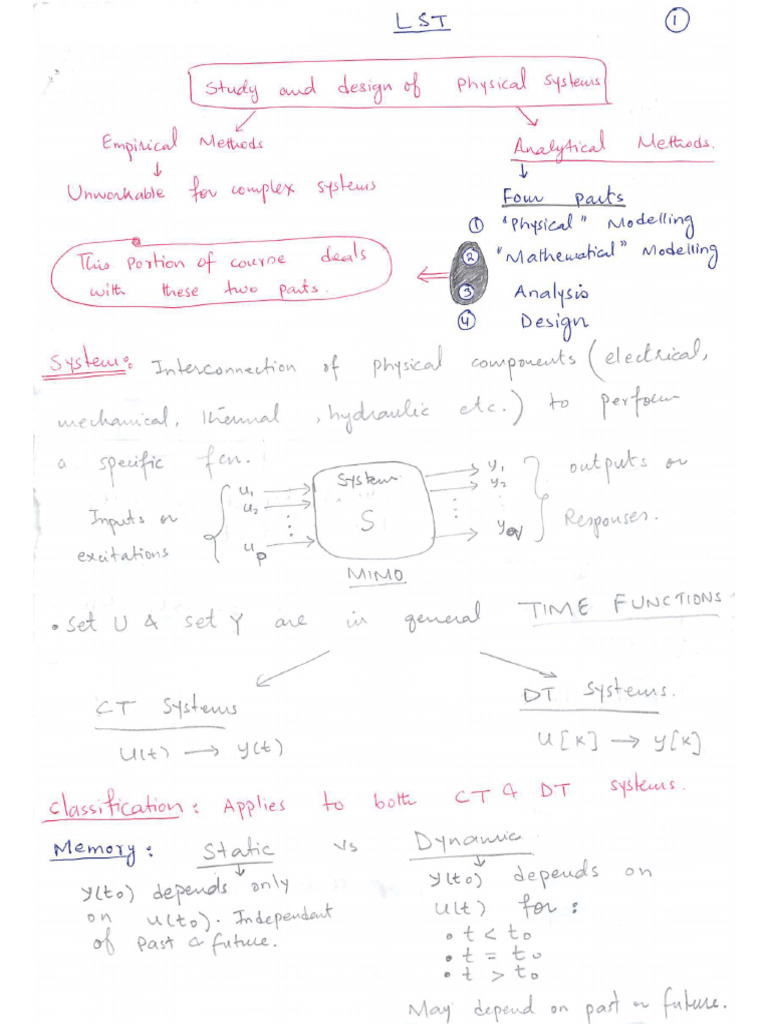 LST
1
Study and design of physical systems
Empirical Methods
Analytical Methods.
Unworkable for complex systems
Four parts
1 "Physical" Modelling
2 "Mathematical" Modelling
3 Analysis
4 Design
This portion of course deals
with these two parts.
System: Interconnection of physical components (electrical,
mechanical, thermal, hydraulic etc.) to perform
a specific fcn.
Inputs or
excitations
u1
u2
up
System
S
y1
y2
yq
outputs or
Responses.
MIMO
• Set U & set Y are in general TIME FUNCTIONS
CT Systems
DT Systems.
U(t) → y(t)
U[k] → y[k]
Classification: Applies to both CT & DT systems.
Memory: Static vs Dynamic
y(to) depends only
on u(to). Independent
of past & future.
y(to) depends on
U(t) for:
• t < to
• t = to
• t > to
May depend on past or future.